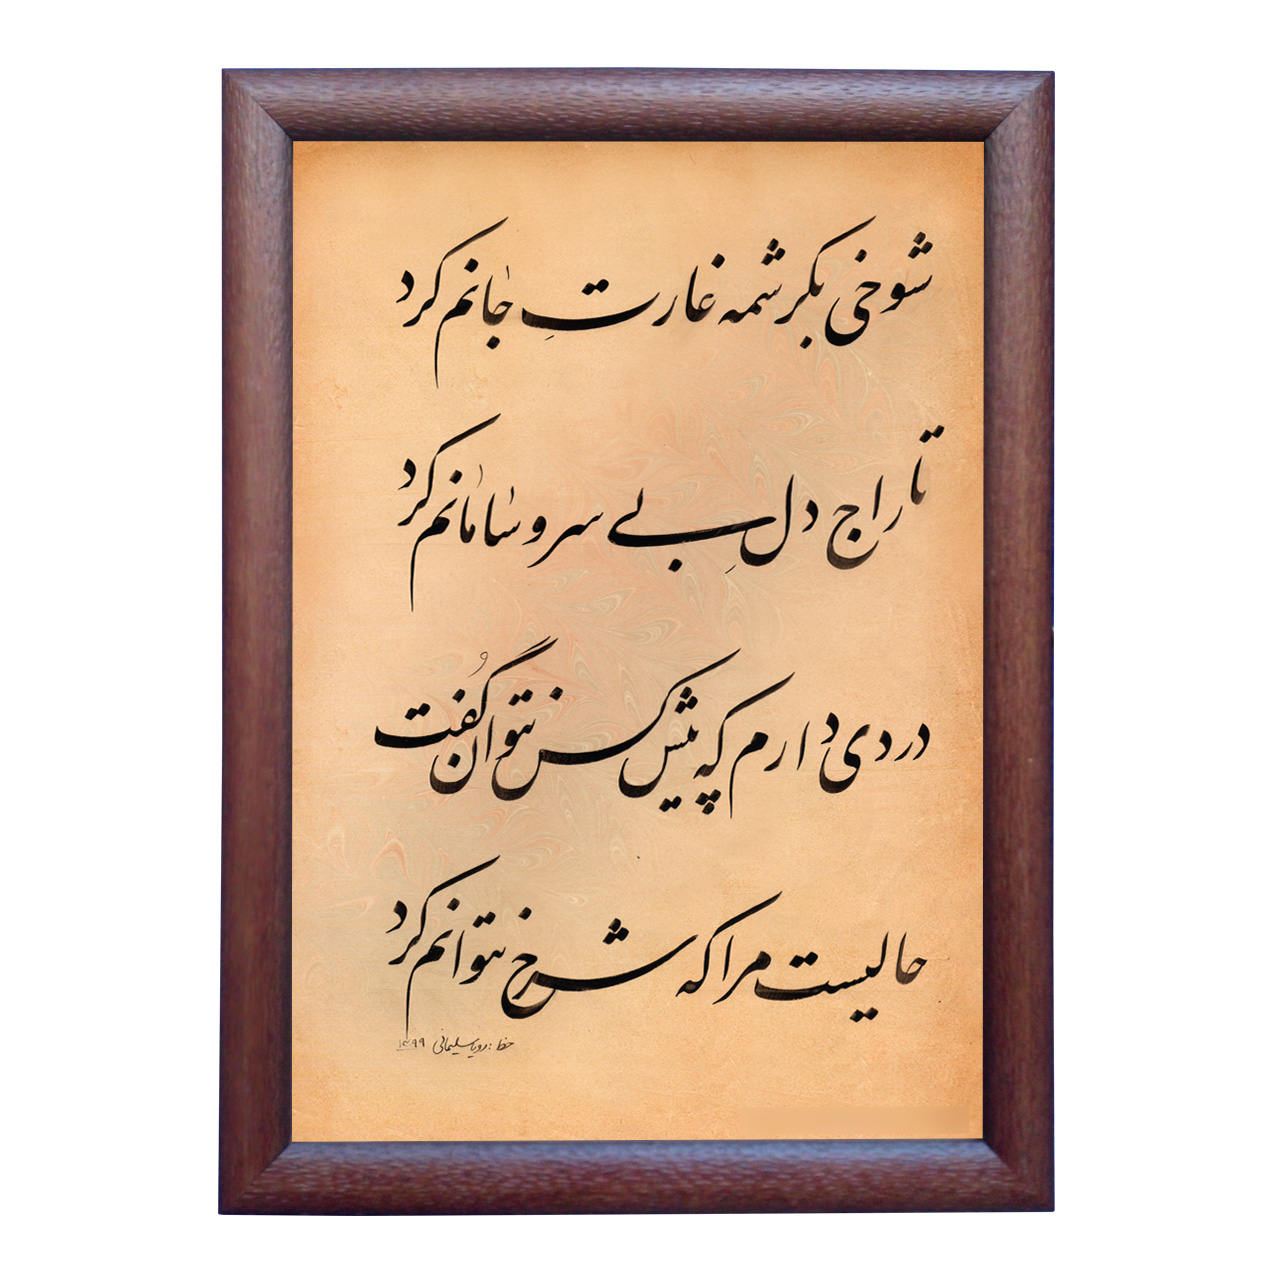 شوخی بکرشمه غارتِ جانم کرد
تاراج دلِ بی سر و سامانم کرد
دردی دارم که پیش کس نتوان گُفت
حالیست مرا که شرح نتوانم کرد
خط : رویا سلیمانی ۱۳۹۹